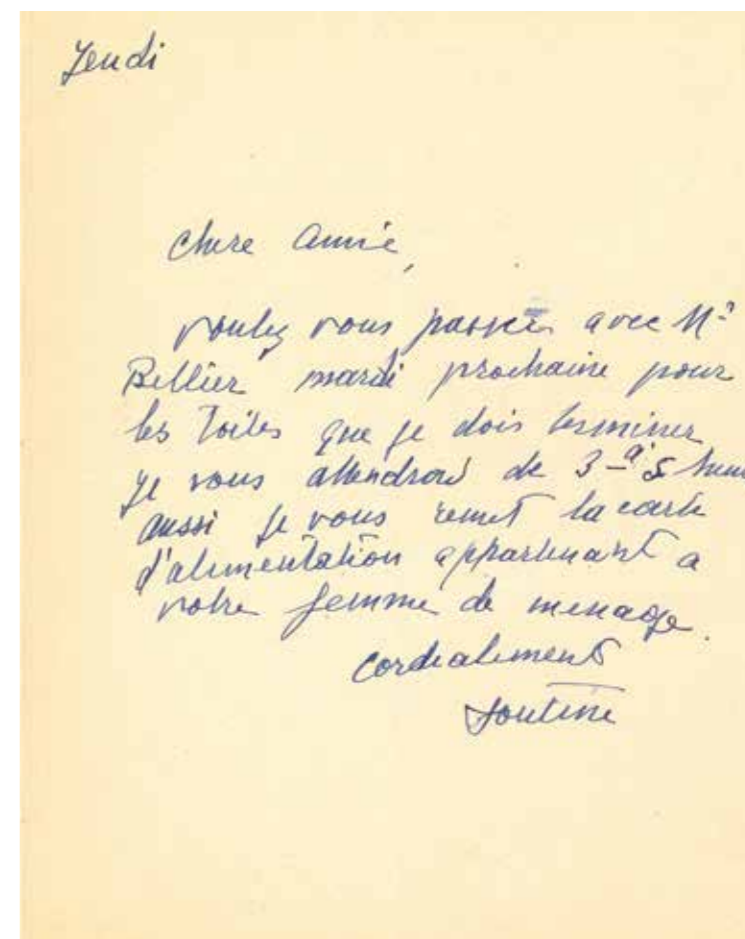 Jeudi
Chere Amie,
voulez vous passer avec Mr
Bellier mardi prochaine pour
les toiles que je dois terminer
je vous attendrai de 3-à 5 heu
aussi je vous remet la carte
d'alimentation appartenant a
votre femme de menage.
Cordialement
Soutine